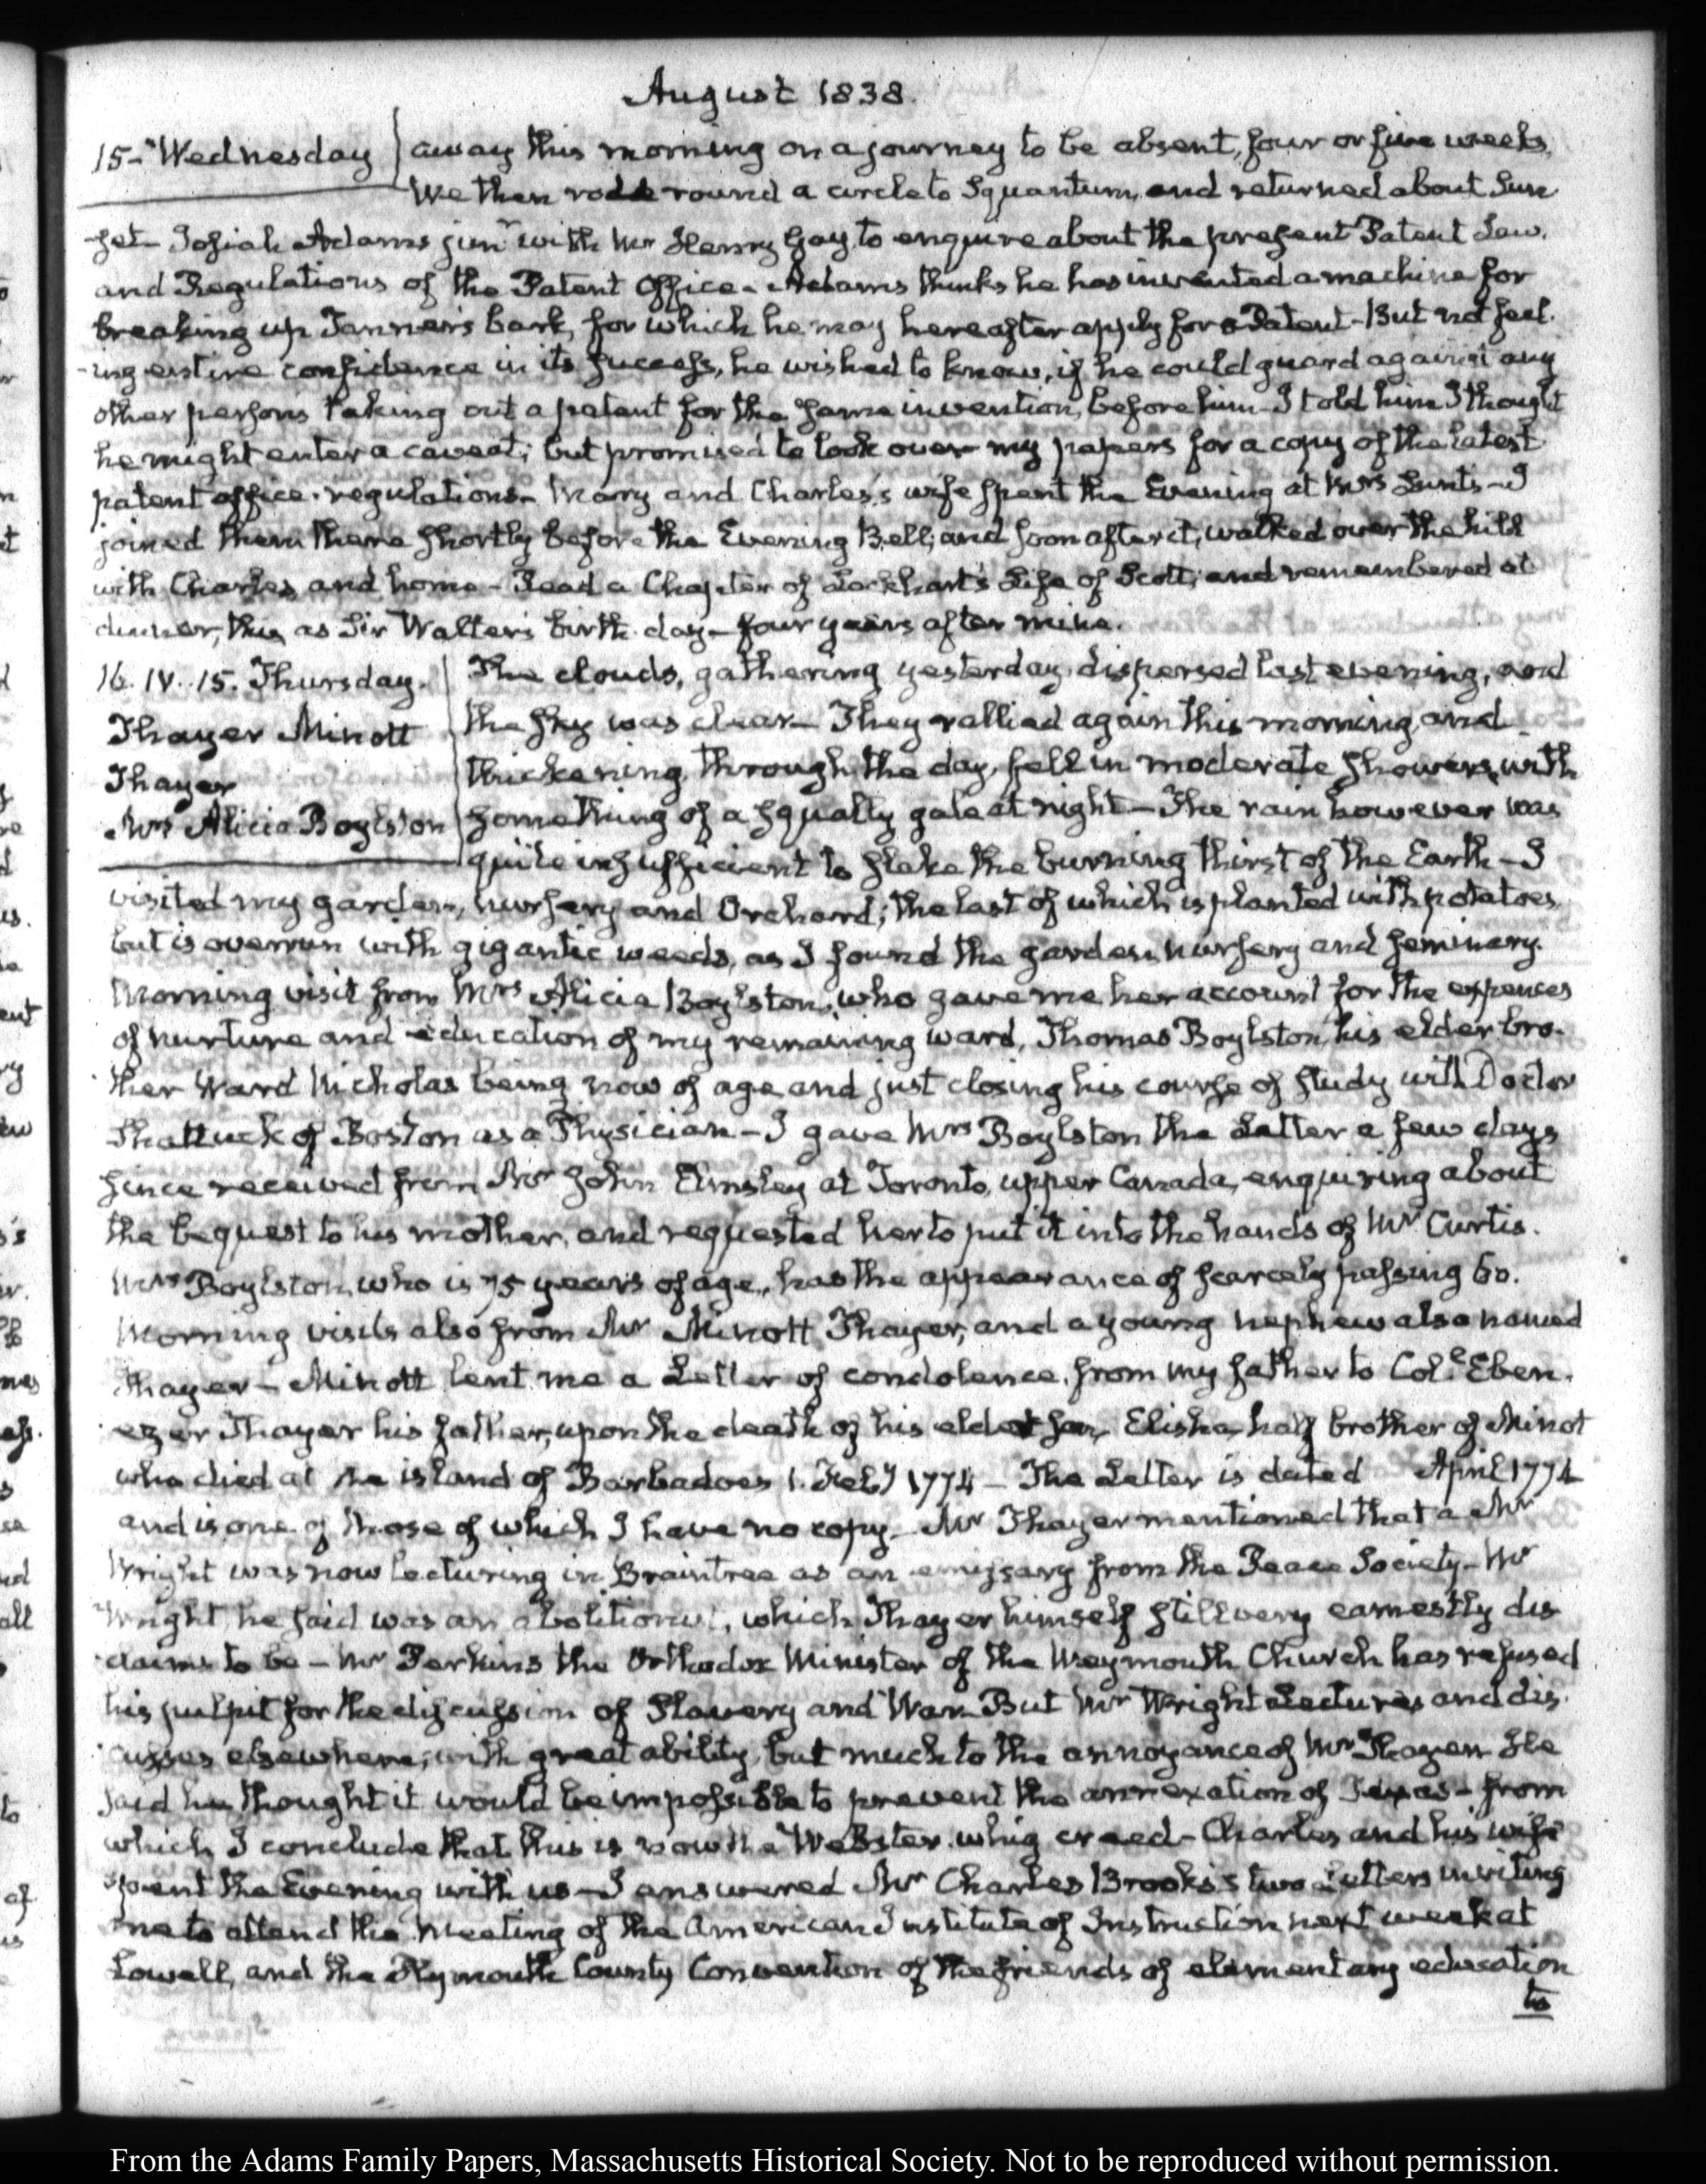 August 1838.
15-" Wednesday
away this morning on a journey to be absent, four or five weeks.
We then rode round a circle to Squantum, and returned about Sun
-set- Josiah Adams junr with Mr Henry Gay, to enquire about the present Patent Law.
and Regulations of the Patent Office- Adams thinks he has invented a machine for
breaking up Tanner's bark, for which he may hereafter apply for a Patent- But not feel-
-ing entire confidence in its success, he wished to know, if he could guard against any
other person's taking out a patent for the same invention, before him- I told him I thought
he might enter a caveat; but promised to look over my papers for a copy of the latest
patent office regulations- Mary and Charles's wife spent the Evening at Mrs Lunt's- I
joined them there shortly before the Evening Bell; and soon after it, walked over the hill
with Charles, and home- Read a Chapter of Lockhart's Life of Scott; and remembered at
dinner, this as Sir Walter's birth-day- four years after mine.
16. IV. 15. Thursday.
Thayer Minott
Thayer
Mrs Alicia Boylston
The clouds, gathering yesterday, dispersed last evening, and
the sky was clear- They rallied again this morning, and
thickening through the day, fell in moderate showers, with
something of a squally gale at night- The rain however was
quite insufficient to slake the burning thirst of the Earth- I
visited my garden, nursery and Orchard; the last of which is planted with potatoes,
but is overrun with gigantic weeds, as I found the garden, nursery and seminary.
Morning visit from Mrs Alicia Boylston, who gave me her account for the expences
of nurture and education of my remaining ward, Thomas Boylston, his elder bro-
ther Ward Nicholas being now of age and just closing his course of study with Doctor
Shattuck of Boston as a Physician- I gave Mrs Boylston the Letter a few days
since received from Mr John Elmsley at Toronto, upper Canada, enquiring about
the bequest to his mother, and requested her to put it into the hands of Mr Curtis.
Mrs Boylston, who is 75 years of age, has the appearance of scarcely passing 60.
Morning visits also from Mr Minott Thayer, and a young nephew also named
Thayer- Minott lent me a Letter of condolence, from my father to Col. Eben-
ezer Thayer his father, upon the death of his eldest son Elisha, half brother of Minot
who died at the island of Barbadoes 1. Feby 1774- The Letter is dated April 1774
and is one of those of which I have no copy- Mr Thayer mentioned that a Mr
Wright was now lecturing in Braintree as an emissary from the Peace Society- Mr
Wright he said was an abolitionist, which Thayer himself still very earnestly dis
claims to be- Mr Perkins the Orthodox Minister of the Weymouth Church has refused
his pulpit for the discussion of Slavery and War- But Mr Wright Lectures and dis-
cusses elsewhere, with great ability, but much to the annoyance of Mr Thayer- He
said he thought it would be impossible to prevent the annexation of Texas- from
which I conclude that this is now the Webster whig creed- Charles and his wife
spent the Evening with us- I answered Mr Charles Brooks's two Letters inviting
me to attend the meeting of the American Institute of Instruction next week at
Lowell, and the Plymouth County Convention of the friends of elementary education
to
From the Adams Family Papers, Massachusetts Historical Society. Not to be reproduced without permission.